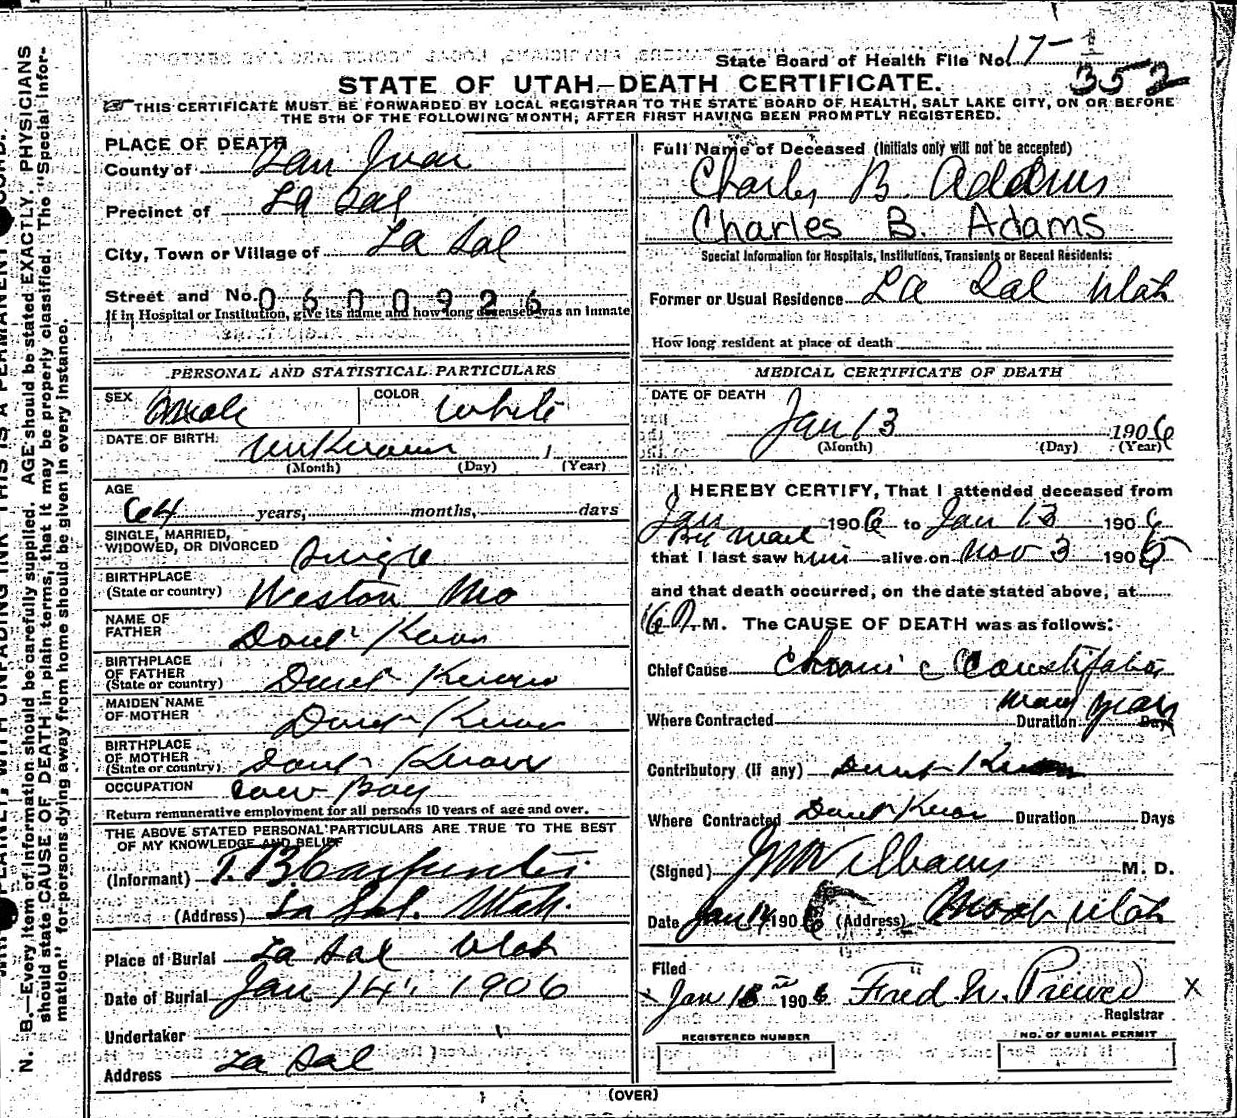 State Board of Health File No. 17-
352
STATE OF UTAH-DEATH CERTIFICATE.
THIS CERTIFICATE MUST BE FORWARDED BY LOCAL REGISTRAR TO THE STATE BOARD OF HEALTH, SALT LAKE CITY, ON OR BEFORE
THE 5TH OF THE FOLLOWING MONTH; AFTER FIRST HAVING BEEN PROMPTLY REGISTERED.
PLACE OF DEATH
County of San Juan
Precinct of La Sal
City, Town or Village of La Sal
Street and No. 0600926
If in Hospital or Institution, give its name and how long deceased was an inmate
PERSONAL AND STATISTICAL PARTICULARS
SEX Male COLOR White
DATE OF BIRTH. unknown 1
(Month) (Day) (Year)
AGE
64 years, months, days
SINGLE, MARRIED,
WIDOWED, OR DIVORCED Single
BIRTHPLACE
(State or country) Weston Mo
NAME OF
FATHER Dont Know
BIRTHPLACE
OF FATHER
(State or country) Dont Know
MAIDEN NAME
OF MOTHER Dont Know
BIRTHPLACE
OF MOTHER
(State or country) Dont Know
OCCUPATION Cow Boy
Return remunerative employment for all persons 10 years of age and over.
THE ABOVE STATED PERSONAL PARTICULARS ARE TRUE TO THE BEST
OF MY KNOWLEDGE AND BELIEF
(Informant) T. B. Carpenter
(Address) La Sal. Utah.
Place of Burial La Sal Utah
Date of Burial Jan 14, 1906
Undertaker
Address La Sal
Full Name of Deceased (Initials only will not be accepted)
Charles B Addams
Charles B. Adams
Special Information for Hospitals, Institutions, Transients or Recent Residents:
Former or Usual Residence La Sal Utah
How long resident at place of death
MEDICAL CERTIFICATE OF DEATH
DATE OF DEATH
Jan 13 1906
(Month) (Day) (Year)
I HEREBY CERTIFY, That I attended deceased from
Jan 1906 to Jan 13 1906
By mail
that I last saw him alive on Nov 3 1905
and that death occurred, on the date stated above, at
M. The CAUSE OF DEATH was as follows:
Chief Cause Chronic Constipation
many years
Where Contracted Duration Days
Contributory (if any) Dont Know
Where Contracted Dont Know Duration Days
(Signed) J W Williams M. D.
Date Jan 14 1906 (Address) Moab Utah
Filed
Jan 1906 Fred W. Registrar
REGISTERED NUMBER
NO. OF BURIAL PERMIT
(OVER)
N. B.—Every item of information should be carefully supplied. AGE should be stated EXACTLY. PHYSICIANS
should state CAUSE OF DEATH in plain terms, that it may be properly classified. The "Special Infor-
mation" for persons dying away from home should be given in every instance.